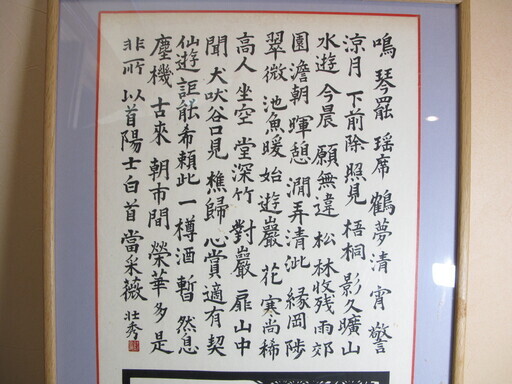 鳴琴罷瑶席鶴夢清宵警
涼月下前除照見梧桐影久曠山
水遊今晨願無違松林收残雨郊
園澹朝暉憩澗弄清泚縁岡陟
翠微池魚暖始遊巖花寒尚稀
高人坐空堂深竹對巖扉山中
聞犬吠谷口見樵歸心賞適有契
仙遊詎能希頼此一樽酒暫然息
塵機古來朝市間榮華多是
非所以首陽士白首當采薇壮秀